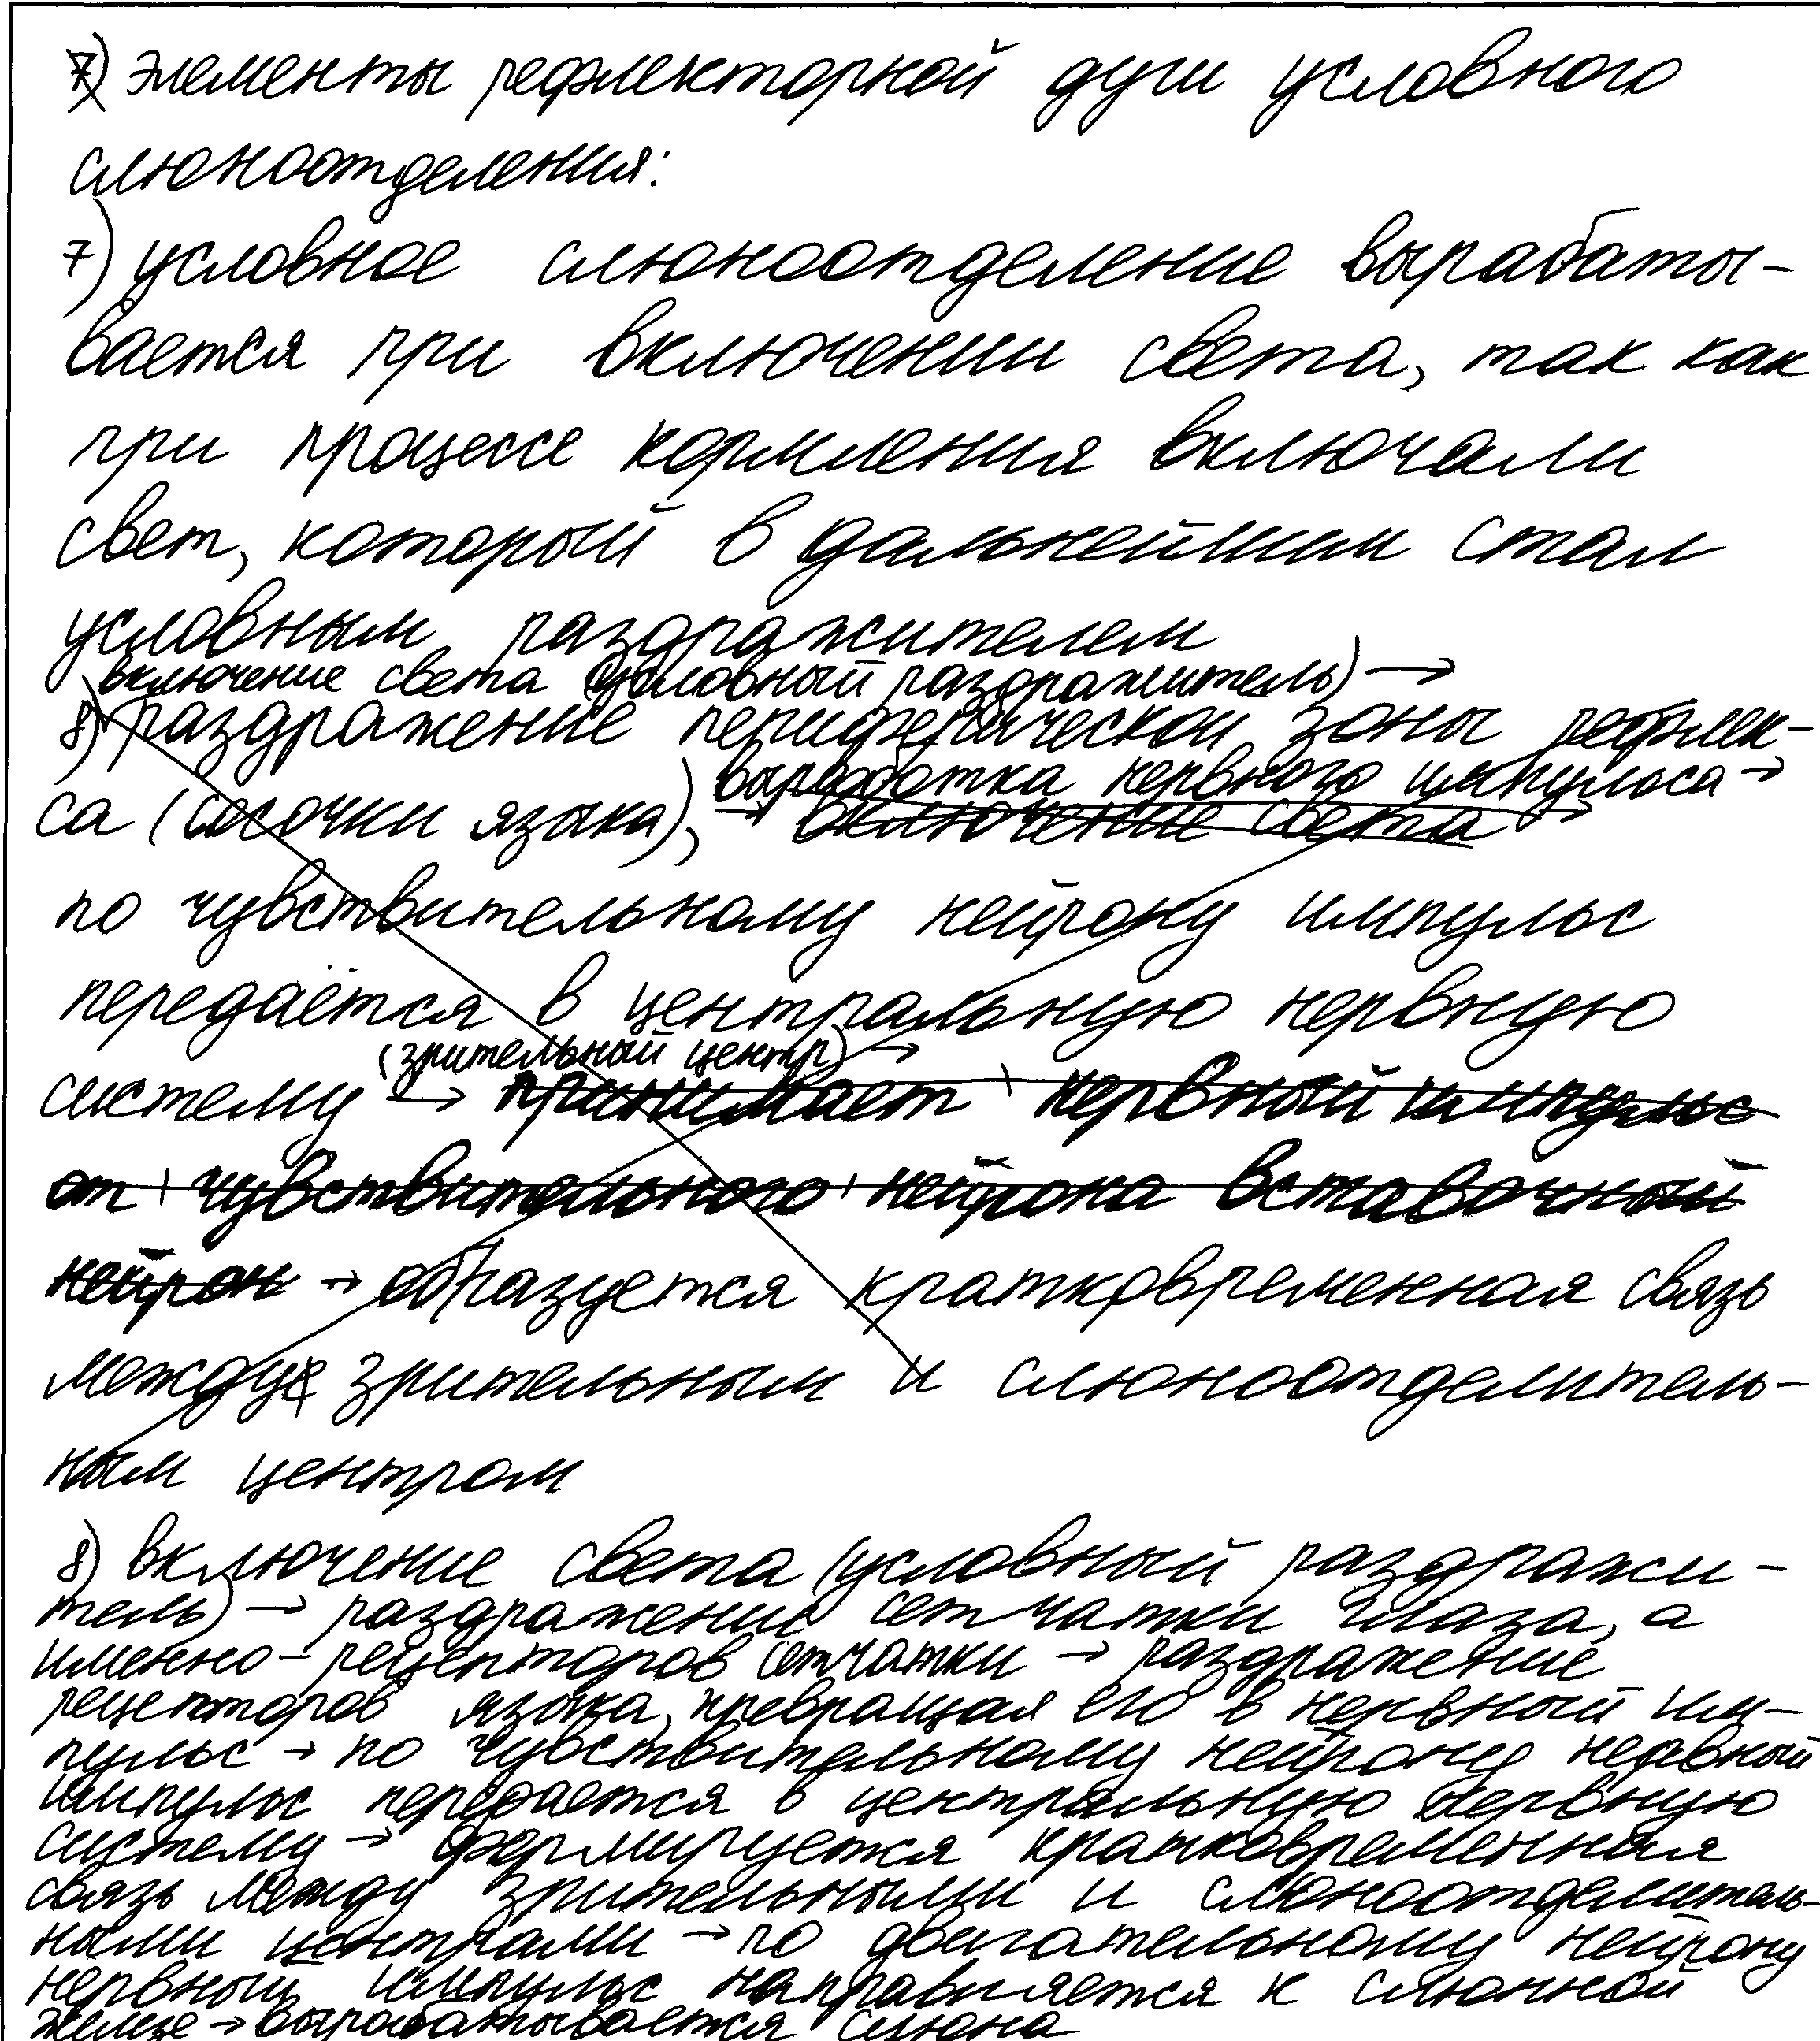 7) элементы рефлекторной дуги условного
слюноотделения:
7) условное слюноотделение вырабаты-
вается при включении света, так как
при процессе кормления включали
свет, который в дальнейшим стал
условным раздражителем
включение света (условный раздражитель) →
8) раздражение периферической зоны рефлек-
выработка нервного импульса →
са (сосочки языка), → включение света →
по чувствительному нейрону импульс
передаётся в центральную нервную
(зрительный центр) →
систему → принимает нервный импульс
от чувствительного нейрона вставочный
нейрон → образуется кратковременная связь
между зрительным и слюноотделитель-
ным центром
8) включение света (условный раздражи-
тель) → раздражение сетчатки глаза, а
именно – рецепторов сетчатки → раздражение
рецепторов языка, превращая его в нервный им-
пульс → по чувствительному нейрону нервный
импульс передается в центральную нервную
систему → формируется кратковременная
связь между зрительными и слюноотделитель-
ными центрами → по двигательному нейрону
нервный импульс направляется к слюнной
железе → вырабатывается слюна